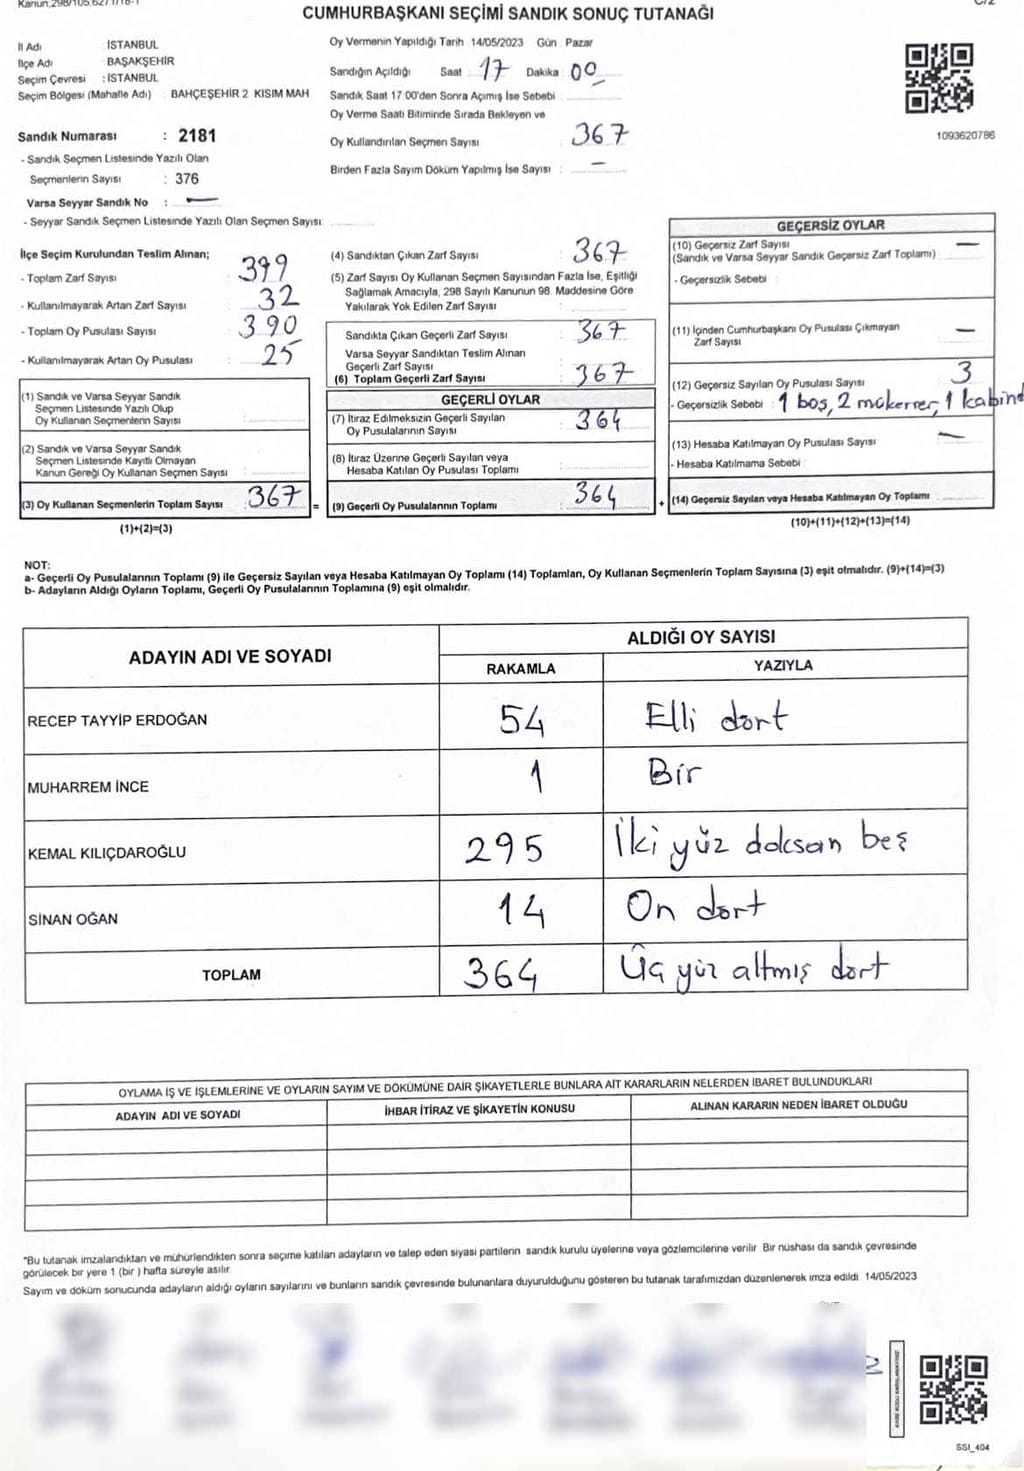 Kanun,298/105,6271/18-1
C/2
CUMHURBAŞKANI SEÇİMİ SANDIK SONUÇ TUTANAĞI
İl Adı : İSTANBUL
İlçe Adı : BAŞAKŞEHİR
Seçim Çevresi : İSTANBUL
Seçim Bölgesi (Mahalle Adı) : BAHÇEŞEHİR 2. KISIM MAH
Sandık Numarası : 2181
- Sandık Seçmen Listesinde Yazılı Olan
Seçmenlerin Sayısı : 376
Varsa Seyyar Sandık No : —
- Seyyar Sandık Seçmen Listesinde Yazılı Olan Seçmen Sayısı:
Oy Vermenin Yapıldığı Tarih 14/05/2023 Gün : Pazar
Sandığın Açıldığı Saat 17 Dakika 00
Sandık Saat 17:00'den Sonra Açımış İse Sebebi :
Oy Verme Saati Bitiminde Sırada Bekleyen ve
Oy Kullandırılan Seçmen Sayısı : 367
Birden Fazla Sayım Döküm Yapılmış İse Sayısı : —
1093620786
İlçe Seçim Kurulundan Teslim Alınan;
- Toplam Zarf Sayısı : 399
- Kullanılmayarak Artan Zarf Sayısı : 32
- Toplam Oy Pusulası Sayısı : 390
- Kullanılmayarak Artan Oy Pusulası : 25
(1) Sandık ve Varsa Seyyar Sandık
Seçmen Listesinde Yazılı Olup
Oy Kullanan Seçmenlerin Sayısı :
(2) Sandık ve Varsa Seyyar Sandık
Seçmen Listesinde Kayıtlı Olmayan
Kanun Gereği Oy Kullanan Seçmen Sayısı :
(3) Oy Kullanan Seçmenlerin Toplam Sayısı : 367 =
(1)+(2)=(3)
(4) Sandıktan Çıkan Zarf Sayısı : 367
(5) Zarf Sayısı Oy Kullanan Seçmen Sayısından Fazla İse, Eşitliği
Sağlamak Amacıyla, 298 Sayılı Kanunun 98. Maddesine Göre
Yakılarak Yok Edilen Zarf Sayısı :
Sandıkta Çıkan Geçerli Zarf Sayısı : 367
Varsa Seyyar Sandıktan Teslim Alınan
Geçerli Zarf Sayısı :
(6) Toplam Geçerli Zarf Sayısı : 367
GEÇERLİ OYLAR
(7) İtiraz Edilmeksizin Geçerli Sayılan
Oy Pusulalarının Sayısı : 364
(8) İtiraz Üzerine Geçerli Sayılan veya
Hesaba Katılan Oy Pusulası Toplamı :
(9) Geçerli Oy Pusulalarının Toplamı : 364 +
GEÇERSİZ OYLAR
(10) Geçersiz Zarf Sayısı —
(Sandık ve Varsa Seyyar Sandık Geçersiz Zarf Toplamı) :
- Geçersizlik Sebebi :
(11) İçinden Cumhurbaşkanı Oy Pusulası Çıkmayan
Zarf Sayısı : —
(12) Geçersiz Sayılan Oy Pusulası Sayısı : 3
- Geçersizlik Sebebi : 1 boş, 2 mükerrer, 1 kabind
(13) Hesaba Katılmayan Oy Pusulası Sayısı : —
- Hesaba Katılmama Sebebi :
(14) Geçersiz Sayılan veya Hesaba Katılmayan Oy Toplamı :
(10)+(11)+(12)+(13)=(14)
NOT:
a- Geçerli Oy Pusulalarının Toplamı (9) ile Geçersiz Sayılan veya Hesaba Katılmayan Oy Toplamı (14) Toplamları, Oy Kullanan Seçmenlerin Toplam Sayısına (3) eşit olmalıdır. (9)+(14)=(3)
b- Adayların Aldığı Oyların Toplamı, Geçerli Oy Pusulalarının Toplamına (9) eşit olmalıdır.
ADAYIN ADI VE SOYADI ALDIĞI OY SAYISI
RAKAMLA YAZIYLA
RECEP TAYYİP ERDOĞAN 54 Elli dört
MUHARREM İNCE 1 Bir
KEMAL KILIÇDAROĞLU 295 İki yüz doksan beş
SİNAN OĞAN 14 On dört
TOPLAM 364 Üç yüz altmış dört
OYLAMA İŞ VE İŞLEMLERİNE VE OYLARIN SAYIM VE DÖKÜMÜNE DAİR ŞİKAYETLERLE BUNLARA AİT KARARLARIN NELERDEN İBARET BULUNDUKLARI
ADAYIN ADI VE SOYADI İHBAR İTİRAZ VE ŞİKAYETİN KONUSU ALINAN KARARIN NEDEN İBARET OLDUĞU
*Bu tutanak imzalandıktan ve mühürlendikten sonra seçime katılan adayların ve talep eden siyasi partilerin sandık kurulu üyelerine veya gözlemcilerine verilir. Bir nüshası da sandık çevresinde
görülecek bir yere 1 (bir ) hafta süreyle asılır.
Sayım ve döküm sonucunda adayların aldığı oyların sayılarını ve bunların sandık çevresinde bulunanlara duyurulduğunu gösteren bu tutanak tarafımızdan düzenlenerek imza edildi. 14/05/2023
SSI_404